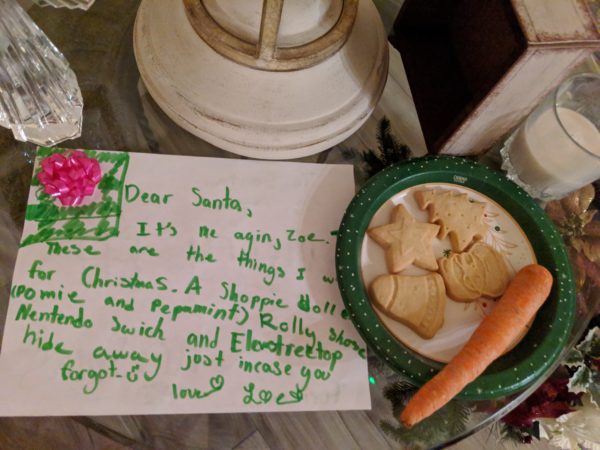 Dear Santa,
It's me agin, Zoe.
These are the things I
for Christmas. A Shoppie dolle
(pomie and pepamint) Rolly shose
Nentendo Swich and
hide away just incase you
forgot
love Zoe